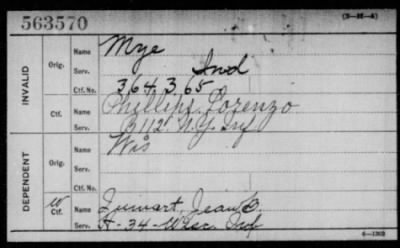 563570
(3-25-A)
INVALID
Orig.
Name
Mye
Serv.
Ind
Ctf. No.
364,365
Ctf.
Name
Phillips, Lorenzo
Serv.
B 112" N.Y. Inf
DEPENDENT
Orig.
Name
Wis
Serv.
Ctf. No.
W
Ctf.
Name
Jean B.
Serv.
A-34-Wisc. Inf
6-1302